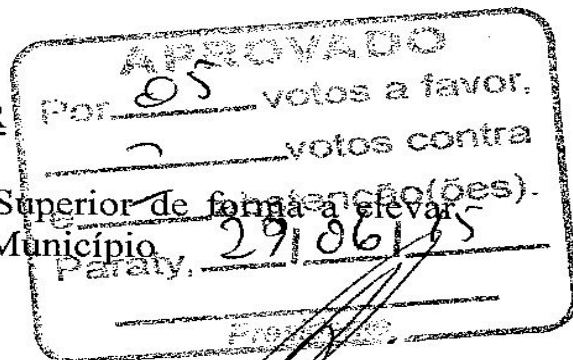 APROVADO
Por 05 votos a favor,
votos contra
Superior de forma a elevar
e abstenção(ões).
Município
Paraty, 29/06/15
Presidente